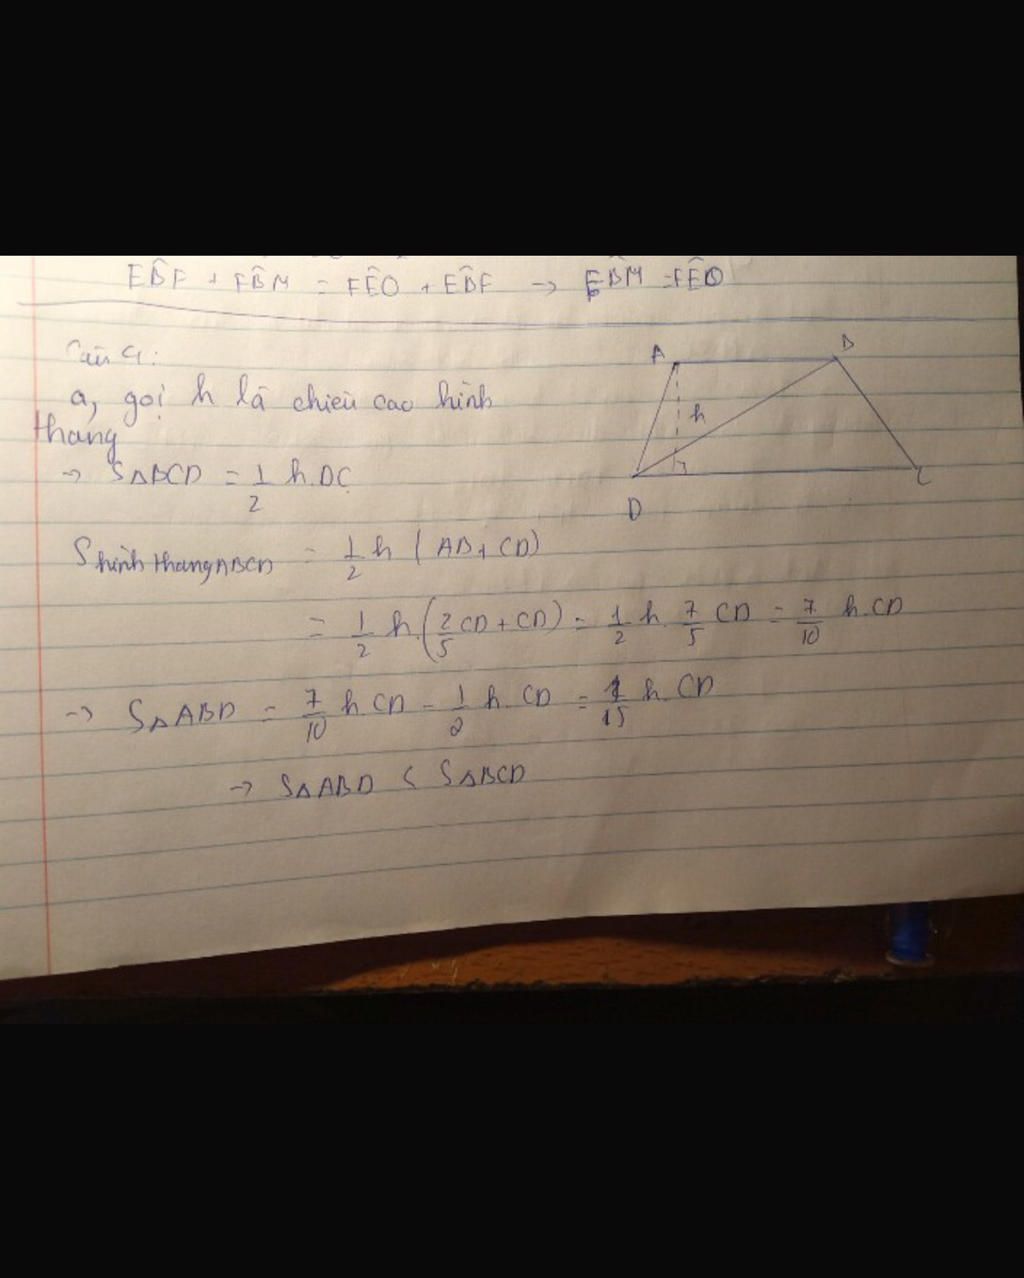 EB̂F + FB̂M = FÊO + EB̂F → FB̂M = FÊO
Câu 4:
a, gọi h là chiều cao hình
thang
→ SΔBCD = 1/2 h.DC
S hình thang ABCD = 1/2 h (AB + CD)
= 1/2 h.(2/5 CD + CD) = 1/2 h. 7/5 CD = 7/10 h.CD
→ SΔABD = 7/10 h.CD - 1/2 h.CD = 1/15 h.CD
→ SΔABD < SΔBCD
A
B
h
D
C